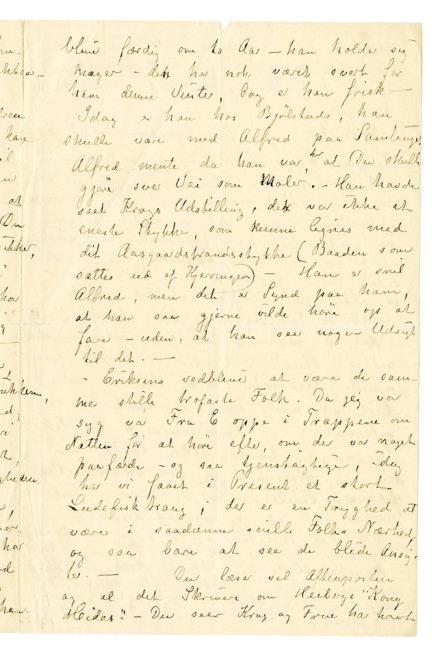 blive færdig om to Aar – han holde sig
mager – den har nok været svært for
ham denne Vinter, dog er han frisk –
Idag er han hos Bjölstads, han
skulle være med Alfred paa
Alfred mente da han var, at Du skulle
gjöre svær Vei som Maler. – Han havde
seet Krags Udstilling, det var ikke et
eneste Stykke, som kunne lignes med
dit Aasgaardstrandsstykke (Baaden som
sættes ud af Kjærringen) – Han er snil
Alfred, men det er Synd paa ham,
at han saa gjerne vilde höre op at
fare – uden, at han seer nogen Udsigt
til det. –
– Eriksens vedblive at være de sam-
me stille trofaste Folk. Da jeg var
syg var Fru E oppe i Trappene om
Natten for at höre efter, om der var noget
paafærde – og saa tjenstagtige, idag
har vi faaet i Present et stort
Ludefisk ; der er en Tryghed at
være i saadanne snille Folks Nærhed,
og saa bare at see de blide Ansig-
ter. – Du læser vel Aftenposten
og al det Skriveri om Heibergs "Kong
Midas". – Du seer Krog og Frue har været